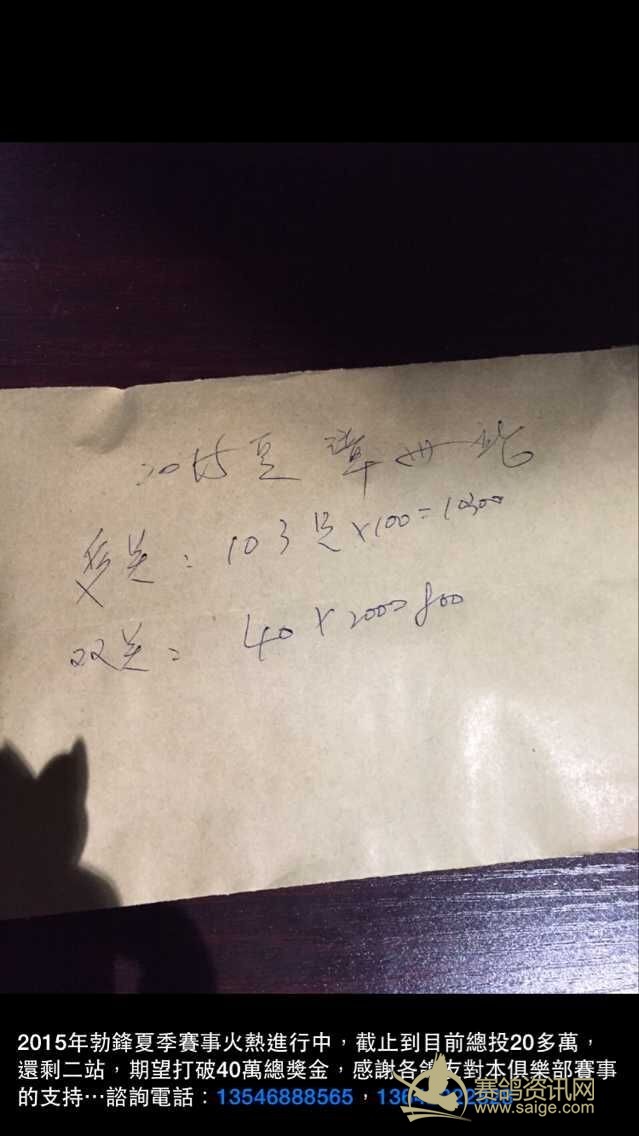 2015夏 漳州站
多关：103只×100=10300
双关：40×200=800
2015年勃鋒夏季賽事火熱進行中，截止到目前總投20多萬，
還剩二站，期望打破40萬總獎金，感謝各鴿友對本俱樂部賽事
的支持…諮詢電話：13546888565，
赛鸽资讯网
www.saige.com